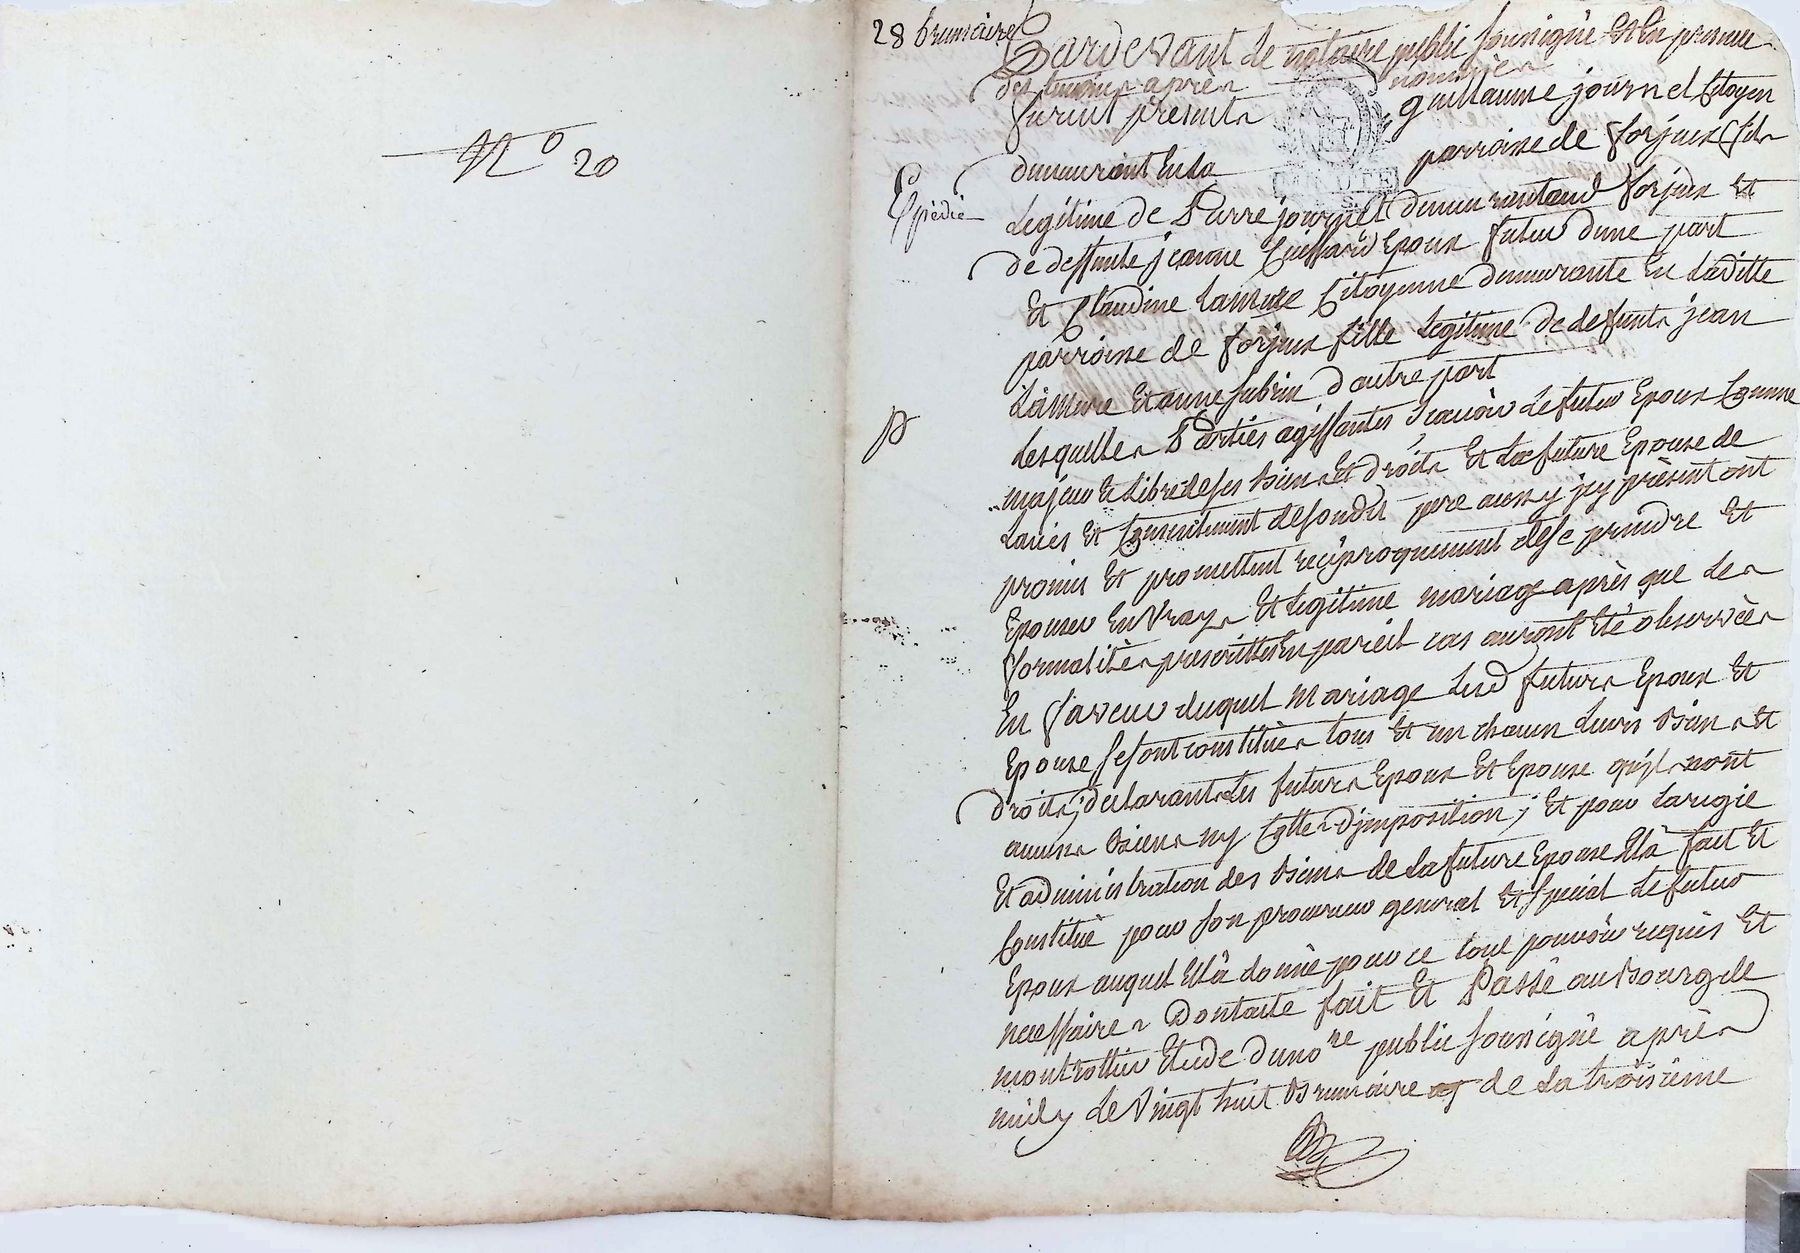 N° 20
28 brumaire
Pardevant le notaire public soussigné Et En presence
des temoins après nommées
furent presents guillaume journel Citoyen
demeurant En la parroisse de forjeux fils
Expedié
Legitime de Pierre journel demeurant aud forjeux Et
de deffunte jeanne Cuissard Epoux futur d'une part
Et Claudine Lamure Citoyenne demeurante En Laditte
parroisse de forjeux fille Legitime de defunts jean
Lamure Et anne subrin d'autre part
p
Lesquelles Parties agissantes scavoir Le futur Epoux Comme
majeur Et Libre de ses biens Et droits Et La future Epouse de
Lavis Et Consentement de sondit pere aussy jcy présent ont
promis Et promettent reciproquement de se prendre Et
Epouser En Vray Et Legitime mariage après que Les
formalités prescrittes En pareil cas auront Eté observées
En faveur duquel mariage Lesd futurs Epoux Et
Epouse se sont constitués tous Et un chacun Leurs biens Et
droits; declarants Les futurs Epoux Et Epouse qu'jls nont
aucuns biens ny Cottes d'jmposition; Et pour La regie
Et administration des biens de La future Epouse Elle a fait Et
Constitué pour son procureur general Et special Le futur
Epoux auquel Elle a donné pour ce tout pouvoir requis Et
necessaire Dont acte fait Et Passé au Bourg de
montrottier Etude du no.re public soussigné après
midy Le Vingt huit Brumaire de La troisième